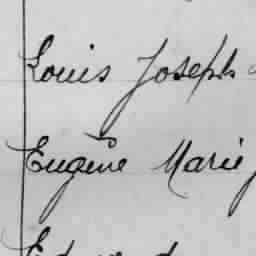 Louis Joseph
Eugène Marie